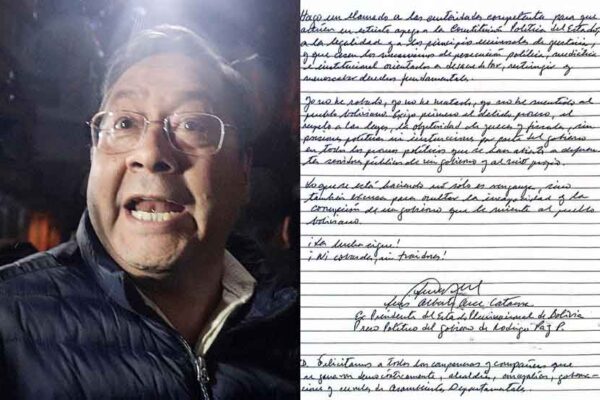 Hago un llamado a las autoridades competentes para que
actúen en estricto apego a la Constitución Política del Estado,
a la legalidad y a los principios universales de justicia,
y que cesen los mecanismos de persecución política, mediática
e institucional orientados a desacreditar, restringir y
menoscabar derechos fundamentales.
Yo no he robado, yo no he matado, yo no he mentido al
pueblo boliviano. Exijo primero el debido proceso, el
respeto a las leyes, la objetividad de jueces y fiscales, sin
presiones políticas ni instrucciones por parte del gobierno
en todos los procesos políticos que se han abierto a
servidores públicos de mi gobierno y al mío propio.
Lo que se está haciendo no sólo es venganza, sino
también excusa para ocultar la incapacidad y la
corrupción de un gobierno que le miente al pueblo
boliviano.
¡La lucha sigue!
¡Ni cobardes, ni traidores!
Luis Alberto Arce Catacora
Ex Presidente del Estado Plurinacional de Bolivia
Preso Político del gobierno de Rodrigo Paz P.
Felicitamos a todos los compañeros y compañeras que
se ganaron democráticamente, alcaldías, concejalías, goberna-
ciones y curules de Asambleistas Departamentales.